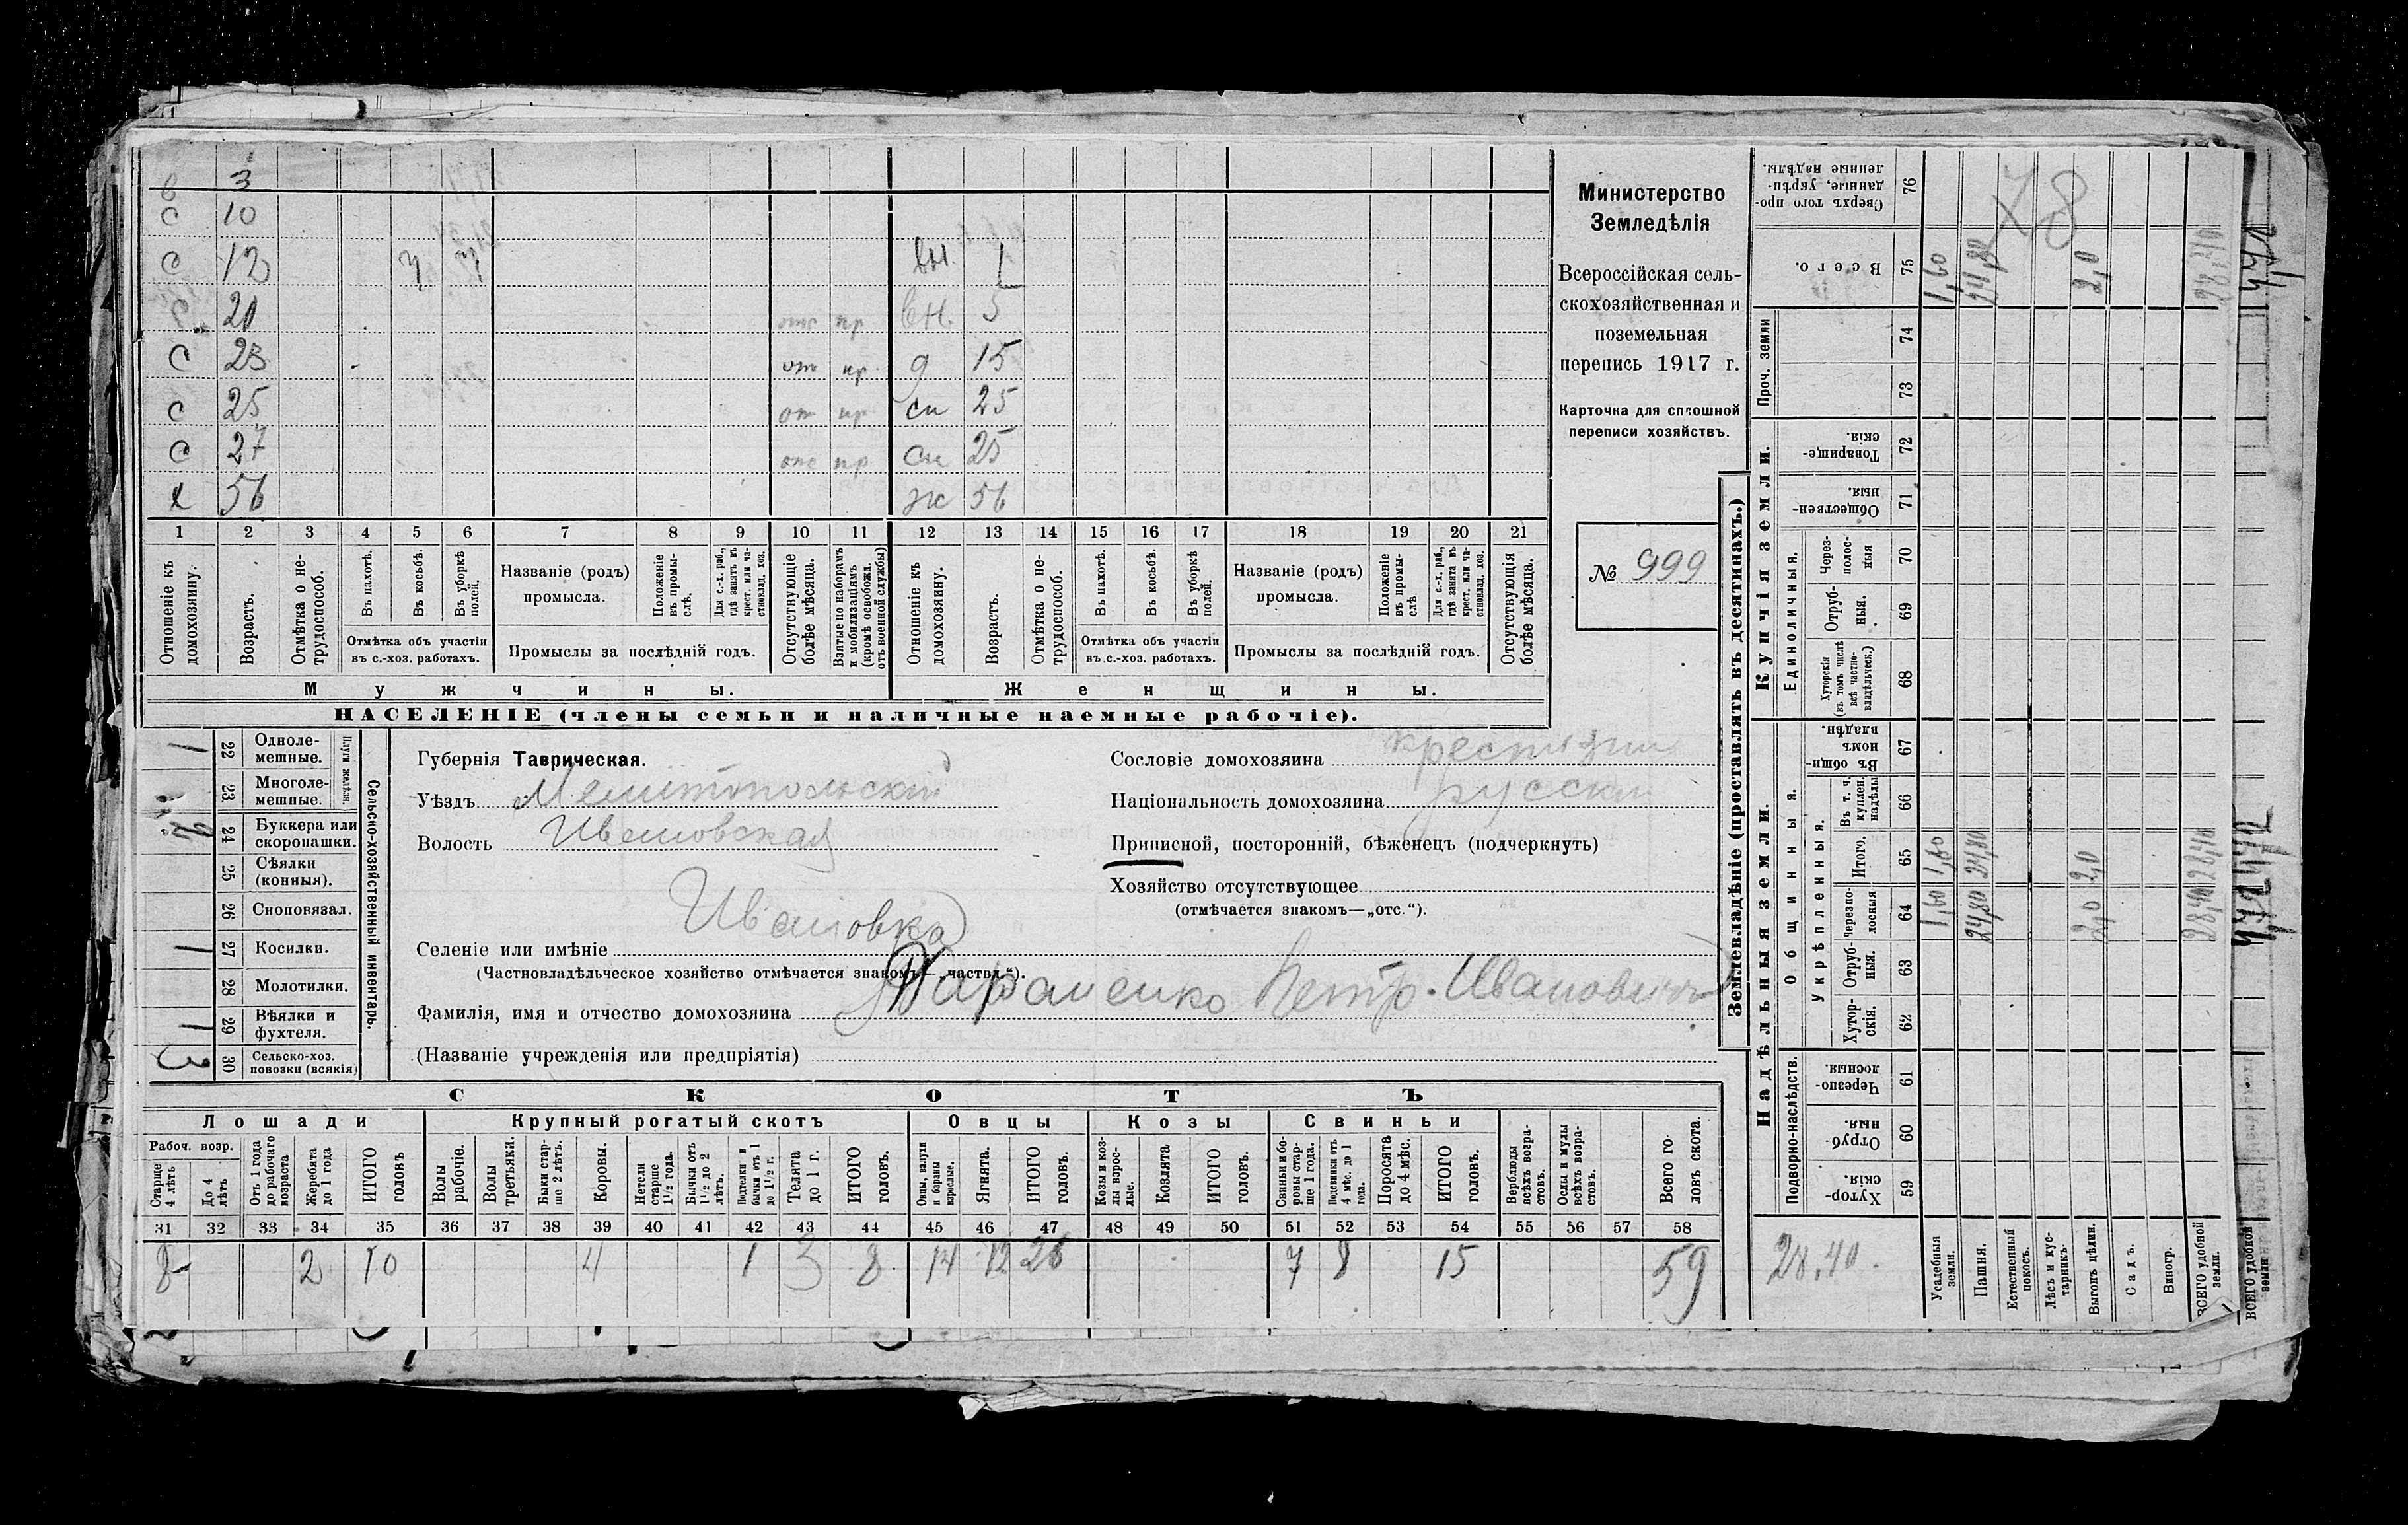 3
С 10
С 12 ч ч вн. 1
С 20 отс пр вн. 5
С 23 от пр д 15
С 25 от пр сн 25
С 27 отс пр сн 25
х 56 ж 56
1 2 3 4 5 6 7 8 9 10 11 12 13 14 15 16 17 18 19 20 21
Отношеніе къ домохозяину.
Возрастъ.
Отмѣтка о нетрудоспособ.
Въ пахотѣ.
Въ косьбѣ.
Въ уборкѣ полей.
Отмѣтка объ участіи
въ с.-хоз. работахъ.
Названіе (родъ)
промысла.
Положеніе въ промыслѣ.
Для с.-х. раб., гдѣ занятъ въ крест. или частновлад. хоз.
Промыслы за послѣдній годъ.
Отсутствующіе болѣе мѣсяца.
Взятые по наборамъ и мобилизаціямъ (кромѣ освобожд. отъ военной службы)
Отношеніе къ домохозяину.
Возрастъ.
Отмѣтка о нетрудоспособ.
Въ пахотѣ.
Въ косьбѣ.
Въ уборкѣ полей.
Отмѣтка объ участіи
въ с.-хоз. работахъ.
Названіе (родъ)
промысла.
Положеніе въ промыслѣ
Для с.-х. раб., гдѣ занята въ крест. или частновлад. хоз.
Промыслы за послѣдній годъ.
Отсутствующія болѣе мѣсяца.
Мужчины. Женщины.
НАСЕЛЕНІЕ (члены семьи и наличные наемные рабочіе).
Министерство
Земледѣлія
Всероссійская сель-
скохозяйственная и
поземельная
перепись 1917 г.
Карточка для сплошной
переписи хозяйствъ.
№ 999
Сельско-хозяйственный инвентарь.
Плуги желѣзн.
1 22 Одноле-
мешные.
23 Многоле-
мешные.
24 Буккера или
скоропашки.
25 Сѣялки
(конныя).
26 Сноповязал.
1 27 Косилки.
28 Молотилки.
1 29 Вѣялки и
фухтеля.
3 30 Сельско-хоз.
повозки (всякія)
Губернія Таврическая.
Уѣздъ Мелитопольскій
Волость Ивановская
Ивановка
Селеніе или имѣніе
(Частновладѣльческое хозяйство отмѣчается знакомъ—„частвл.“).
Фамилія, имя и отчество домохозяина Тараненко Петр. Иванович
(Названіе учрежденія или предпріятія)
Сословіе домохозяина крестьянин
Національность домохозяина русскій
Приписной, посторонній, бѣженецъ (подчеркнуть)
Хозяйство отсутствующее
(отмѣчается знакомъ—„отс.“).
СКОТЪ
Лошади Крупный рогатый скотъ Овцы Козы Свиньи
Рабоч. возр.
Старше 4 лѣтъ
До 4 лѣтъ
Отъ 1 года до рабочаго возраста
Жеребята до 1 года
ИТОГО головъ
Волы рабочіе.
Волы третьяки.
Быки старше 2 лѣтъ.
Коровы.
Нетели старше 1½ года.
Бычки отъ 1½ до 2 лѣтъ.
Подтелки и бычки отъ 1 до 1½ г.
Телята до 1 г.
ИТОГО головъ.
Овцы, валухи и бараны взрослые.
Ягнята.
ИТОГО головъ.
Козы и козлы взрослые.
Козлята
ИТОГО головъ.
Свиньи и боровы старше 1 года.
Подсвинки отъ 4 мѣс. до 1 года.
Поросята до 4 мѣс.
ИТОГО головъ.
Верблюды всѣхъ возрастовъ.
Ослы и мулы всѣхъ возрастовъ.
Всего головъ скота.
31 32 33 34 35 36 37 38 39 40 41 42 43 44 45 46 47 48 49 50 51 52 53 54 55 56 57 58
8 2 10 4 1 3 8 14 12 26 7 8 15 59
Землевладѣніе (проставлять въ десятинахъ.)
Купчія земли.
Надѣльныя земли.
Сверхъ того проданные, укрѣпленные надѣлы. 76
78
Всего. 75 1,60 24,80 2,0 28,40
Проч. земли
74
73
Товарищескія. 72
Общественныя. 71
Единоличныя.
Черезполосныя 70
Отрубныя. 69
Хуторскія (въ томъ числѣ всѣ частновладѣльческ.) 68
Общинныя.
Въ общинномъ владѣн. 67
Укрѣпленныя.
Въ т. ч. куплен. надѣлы 66
Итого. 65 1,60 24,80 2,0 28,40
Черезполосныя 64 1,60 24,80 2,0 28,40
Отрубныя. 63
Хуторскія. 62
Подворно-наслѣдств.
Черезполосныя. 61
Отрубныя. 60
Хуторскія. 59
28,40.
Усадебныя земли.
Пашня.
Естественный покосъ.
Лѣсъ и кустарникъ.
Выгонъ цѣлин.
Садъ.
Виногр.
ВСЕГО удобной земли.
ВСЕГО удобной земли